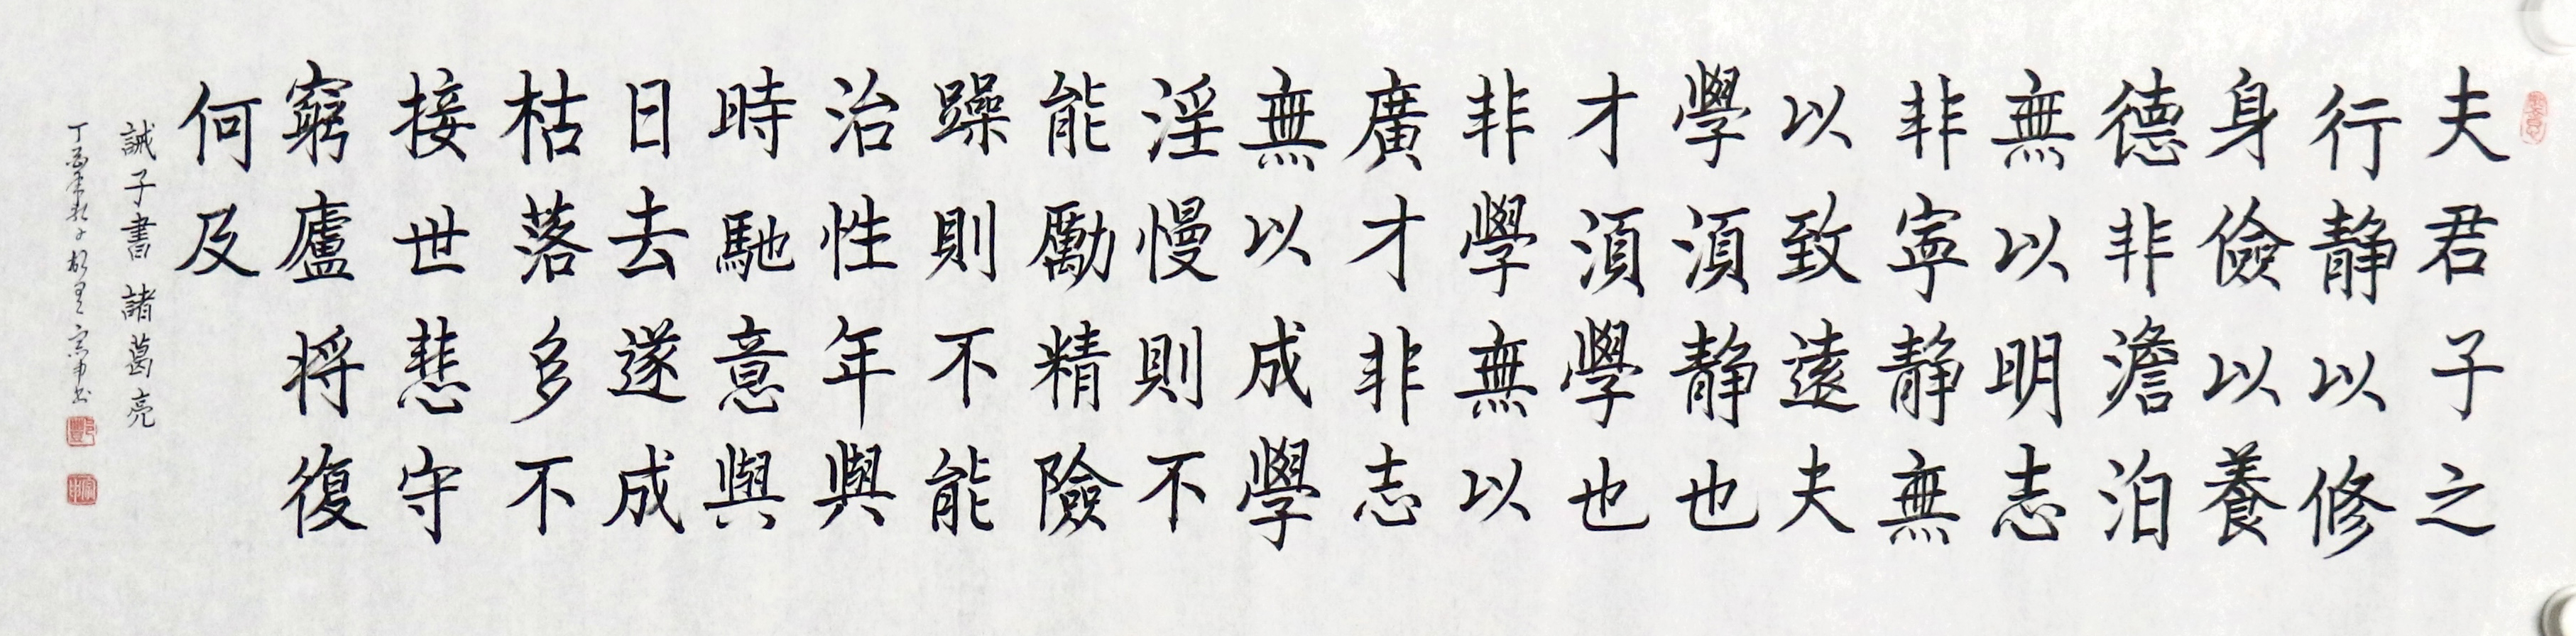 夫君子之
行静以修
身儉以養
德非澹泊
無以明志
非寧静無
以致遠夫
學須静也
才須學也
非學無以
廣才非志
無以成學
淫慢則不
能勵精險
躁則不能
治性年與
時馳意與
日去遂成
枯落多不
接世悲守
窮廬将復
何及
誡子書 諸葛亮